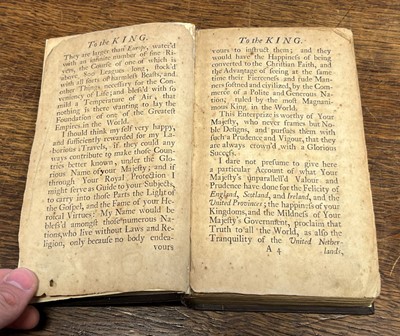 To the KING.
They are larger than Europe, water'd
with an infinite number of fine Ri-
vers, the Course of one of which is
above 800 Leagues long, stock'd
with all sorts of harmless Beasts, and
other Things, necessary for the Con-
veniency of Life; and bless'd with so
mild a Temperature of Air, that
nothing is there wanting to lay the
Foundation of one of the Greatest
Empires in the World.
I should think my self very happy,
and sufficiently rewarded for my La-
borious Travels, if they could any
ways contribute to make those Coun-
tries better known, under the Glo-
rious Name of your Majesty; and if
through Your Royal Protection I
might serve as Guide to your Subjects,
to carry into those Parts the Light of
the Gospel, and the Fame of your He-
roical Virtues: My Name would be
bless'd amongst those numerous Na-
tions, who live without Laws and Re-
ligion, only because no body endea-
vours
To the KING.
vours to instruct them; and they
would have the Happiness of being
converted to the Christian Faith, and
the Advantage of seeing at the same
time their Fierceness and rude Man-
ners softned and civilized, by the Com-
merce of a Polite and Generous Na-
tion, ruled by the most Magnani-
mous King in the World.
This Enterprize is worthy of Your
Majesty, who never frames but No-
ble Designs, and pursues them with
such a Prudence and Vigour, that they
are always crown'd with a Glorious
Success.
I dare not presume to give here
a particular Account of what Your
Majesty's unparallell'd Valour and
Prudence have done for the Felicity of
England, Scotland, and Ireland, and the
United Provinces; the happiness of your
Kingdoms, and the Mildness of Your
Majesty's Government, proclaim that
Truth to all the World, as also the
Tranquility of the United Nether-
A 4 lands,